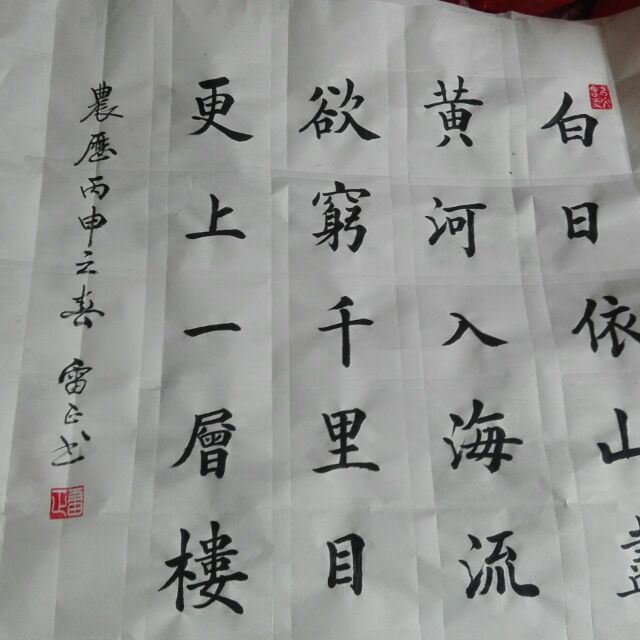 白日依山盡
黄河入海流
欲窮千里目
更上一層樓
農歷丙申之春 雷正书